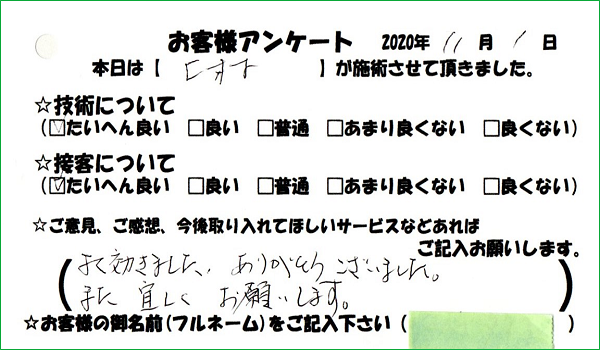 お客様アンケート 2020年 11月 1日
本日は【 】が施術させて頂きました。
☆技術について
(☑たいへん良い □良い □普通 □あまり良くない □良くない)
☆接客について
(☑たいへん良い □良い □普通 □あまり良くない □良くない)
☆ご意見、ご感想、今後取り入れてほしいサービスなどあれば
ご記入お願いします。
(よく効きました、ありがとうございました。
また宜しくお願いします。)
☆お客様の御名前(フルネーム)をご記入下さい(